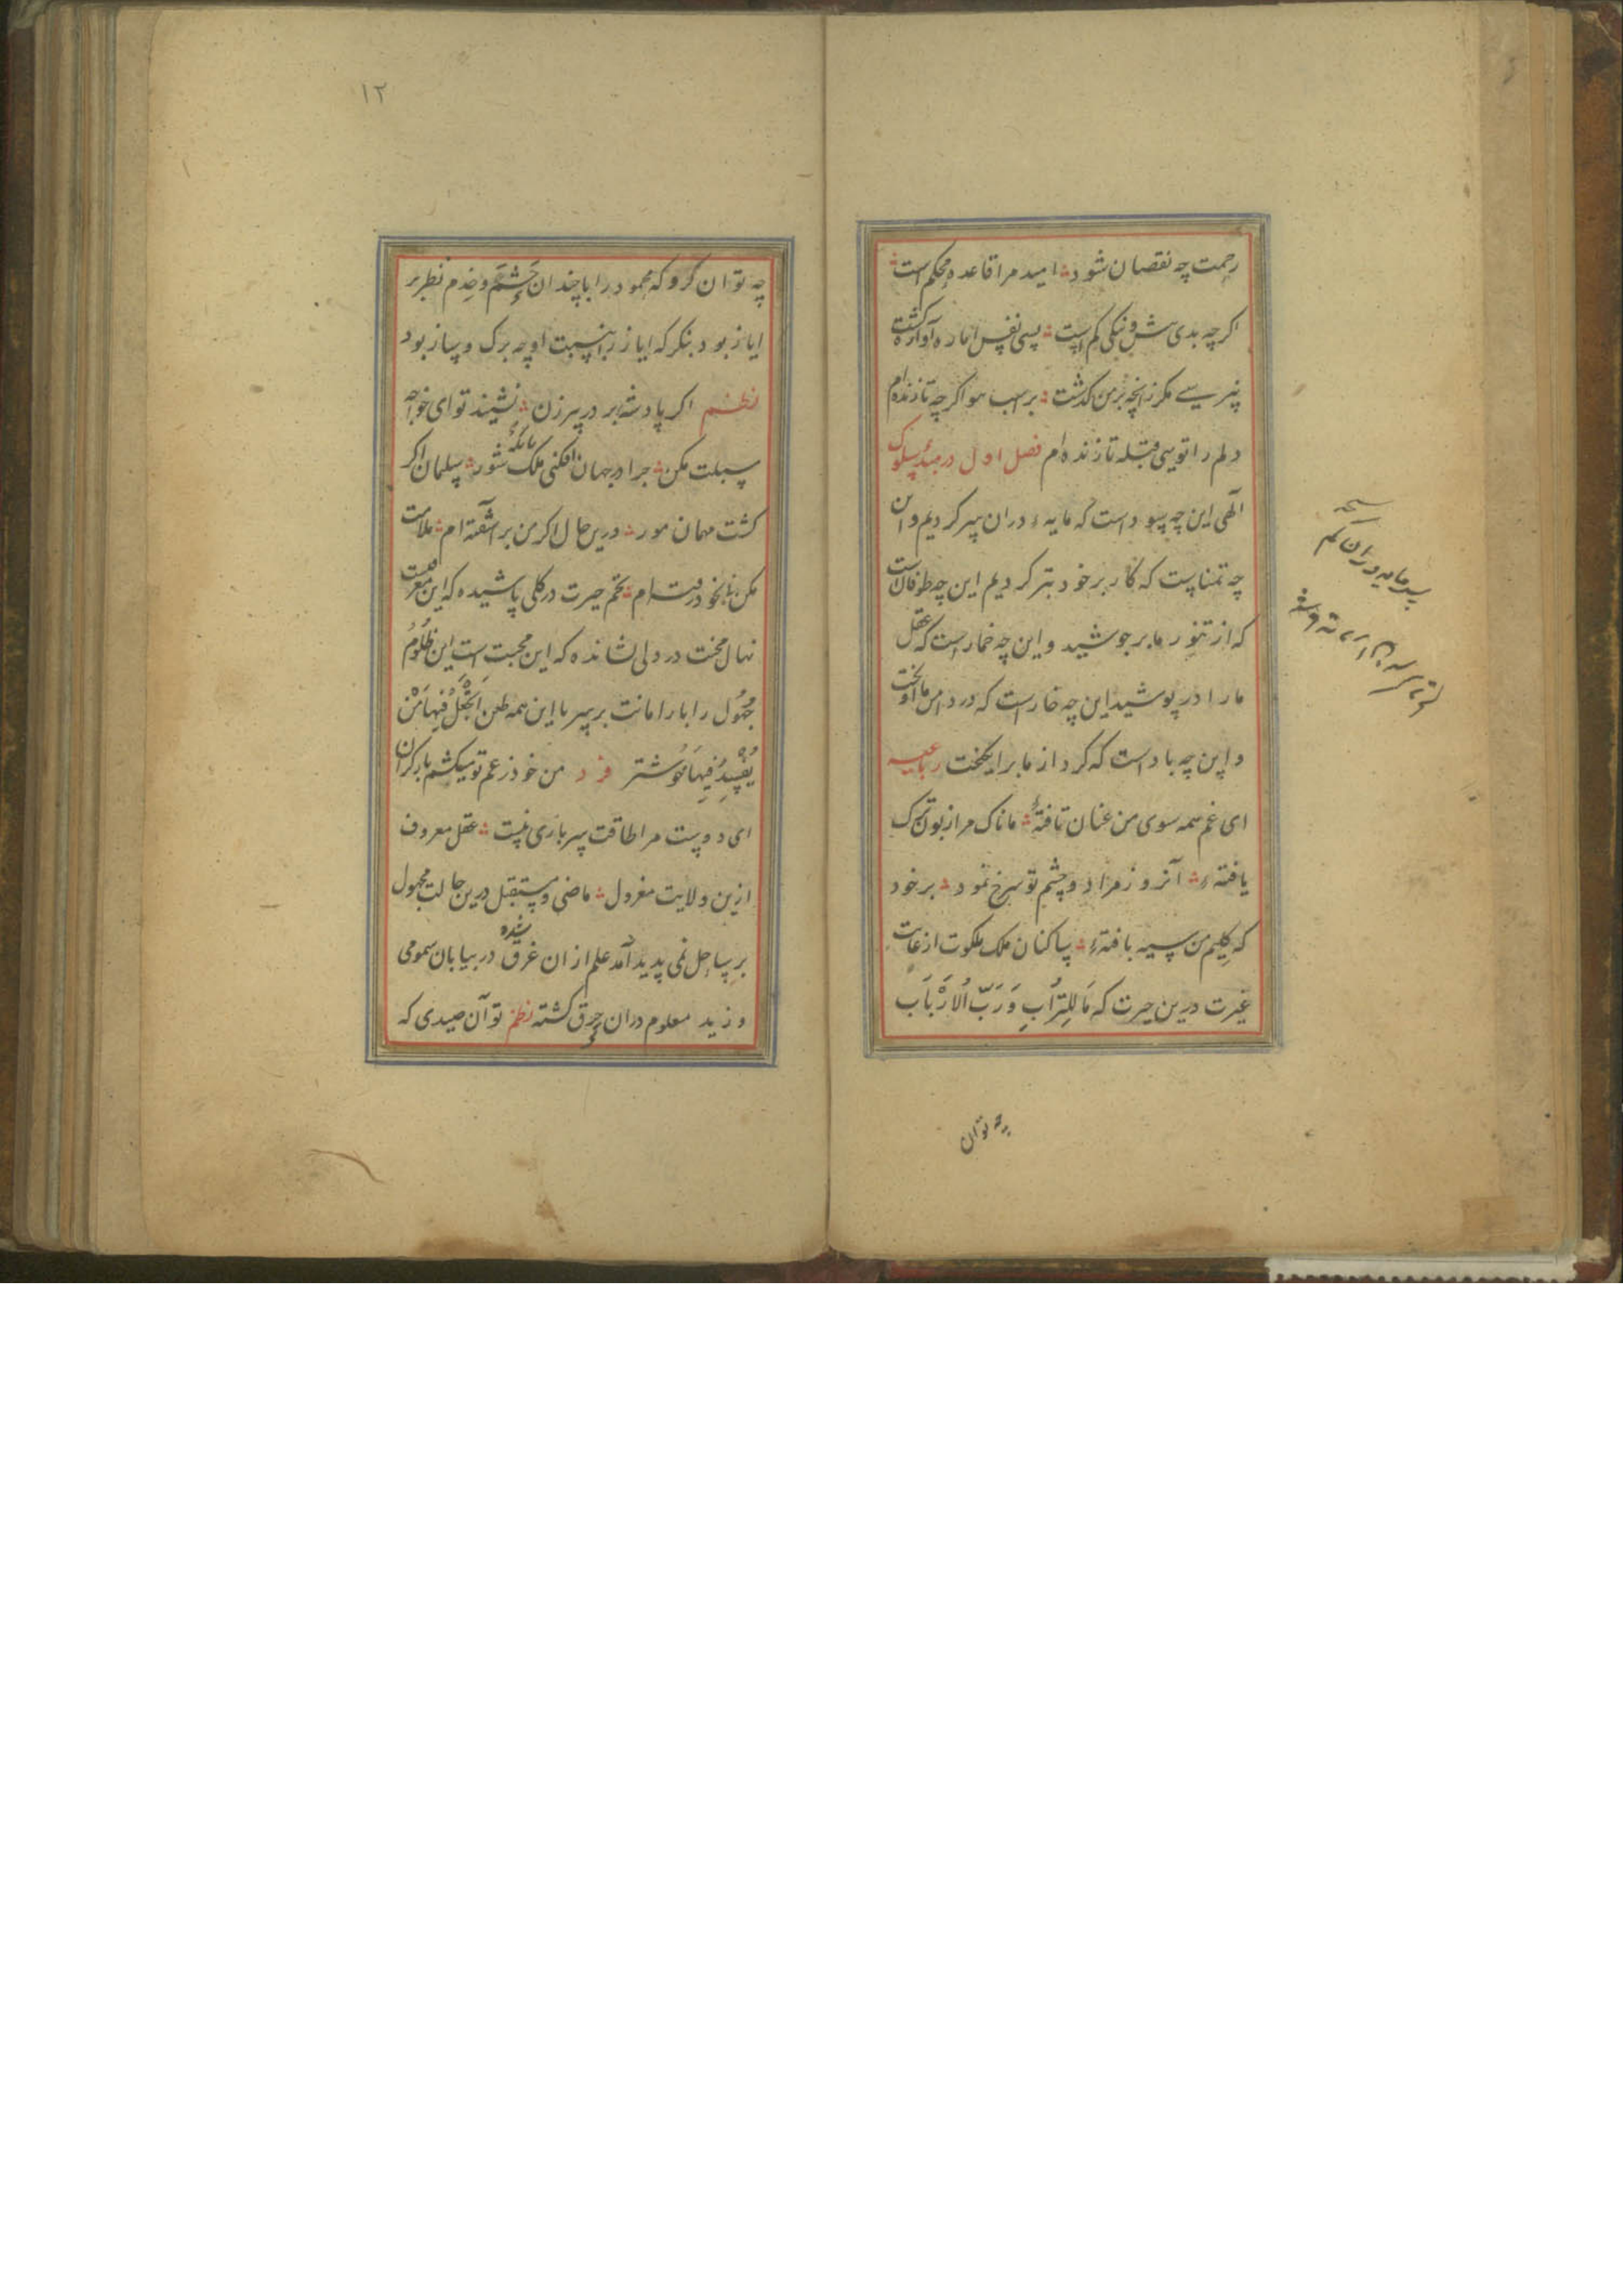 رحمت چه نقصان شود امید مرا قاعده محکم است
اکر چه بدی بیش و نیکی کم است بسی نفس اماره آواره کشت
مکر زانچه بر من کذشت بر اسب هوا اکر چه تازنده ام
دلم را تویی قبله تا زنده ام فصل اول در مبدء سلوک
الهی این چه سود است که مایه دران بسر کردیم و این
چه تمناست که کار بر خود بتر کردیم این چه طوفان است
که از تنور ما بر جوشید و این چه خمار است که عقل
ما را در پوشید این چه خار است که در دامن ما آویخت
و این چه باد است که کرد از ما بر انکیخت رباعیه
ای غم همه سوی من عنان تافتهٔ مانا که مرا زبون ترک
یافتهء آنروز مرا دو چشم تو سرخ نمود بر خود
که کلیم من سیه بافتهء ساکنان ملک ملکوت از غایت
غیرت درین حیرت که مَا لِلتُّرَابِ وَرَبّ الْاَرْبَاب
چه توان
۱۲
چه توان کرد که محمود را با چندان حَشَم و خدم نظر بر
ایاز بود بنکر که ایاز را بنسبت او چه برک و ساز بود
نظم اکر پادشه بر در پیر زن نشیند تو ای خواجه
سبلت مکن چرا در جهان افکنی بانک شور سلیمان اکر
کشت مهمان مور درین حال اکر من بر آشفته ام ملامت
مکن تخم حیرت در کلی پاشیده که این معرفت است
نهال محنت در دلی نشانده که این محبت است این ظَلُومُ
جَهُول را بار امانت بر سر با این همه طعن اَتَجْعَلُ فِیهَا مَنْ
یُفْسِدُ فِیهَا خوشتر فرد من خود ز غم تو میکشم بار کران
ای دوست مرا طاقت سرباری نیست عقل معروف
ازین ولایت معزول ماضی و مستقبل درین حالت مجهول
بر ساحل نمی پدید آمد علم ازان غرق شده در بیابان سمومی
وزید معلوم دران حرق کشته نظم تو آن صیدی که